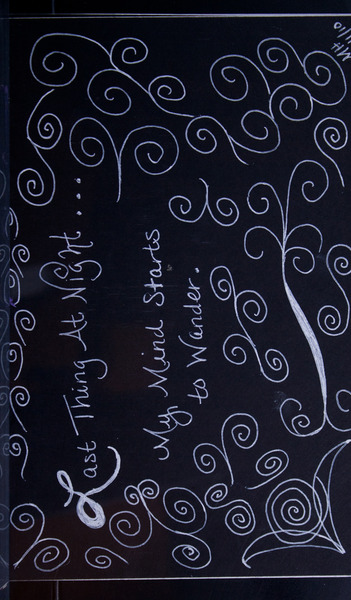 Last Thing At Night...
My Mind Starts
to Wander.